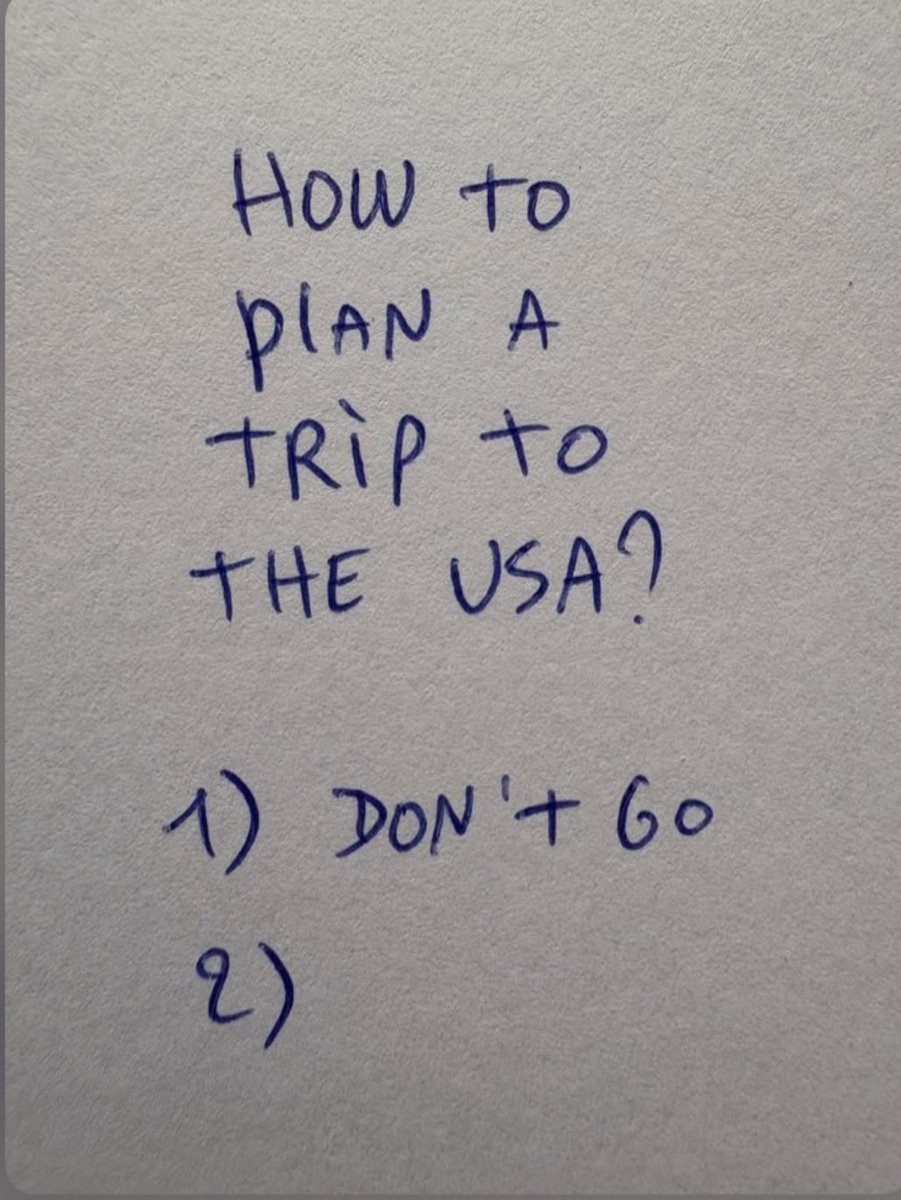 HOW TO
PLAN A
TRIP TO
THE USA?
1) DON'T GO
2)